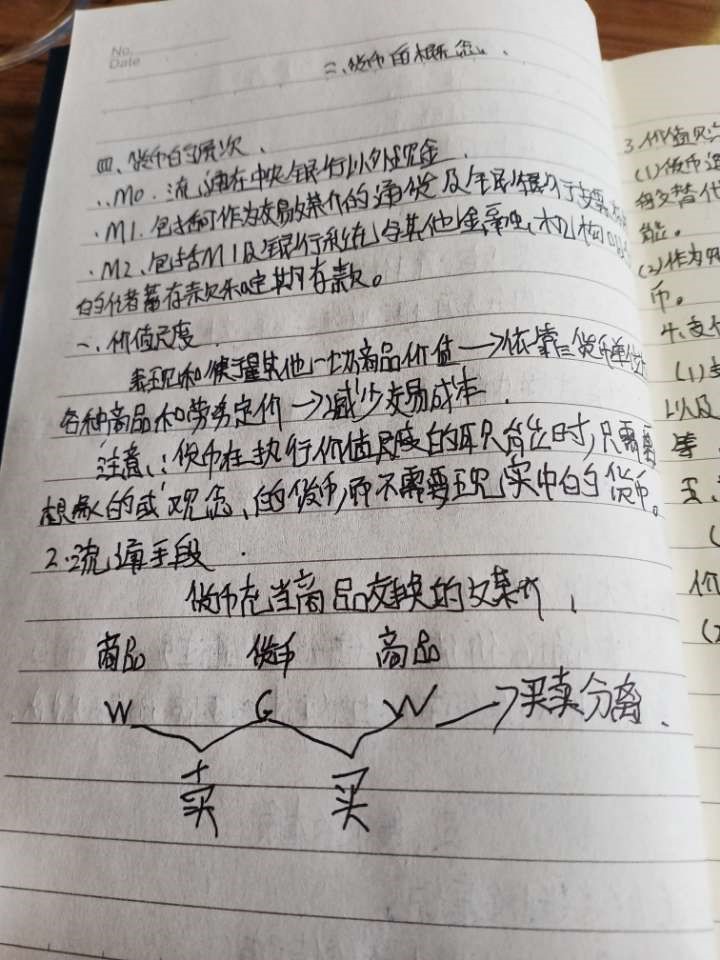 No.
Date
二、货币的概念。
四、货币的层次.
·M0. 流通在中央银行以外现金.
·M1. 包括可作为交易媒介的通货及在民银行支票
·M2. 包括M1及银行系统与其他金融机构
的储蓄存款和定期存款。
一、价值尺度.
表现和衡量其他一切商品价值→依靠货币单位
各种商品和劳务定价→减少交易成本.
注意:货币在执行价值尺度的职能时,只需要
想象的或观念的货币,而不需要现实中的货币。
2.流通手段.
货币充当商品交换的媒介.
商品 货币 商品
W G W →买卖分离.
卖 买
3.价值贮
(1)货币
替代
能。
(2)作为
币。
4.支付
(1)
以及
等
五、
(
价
(2